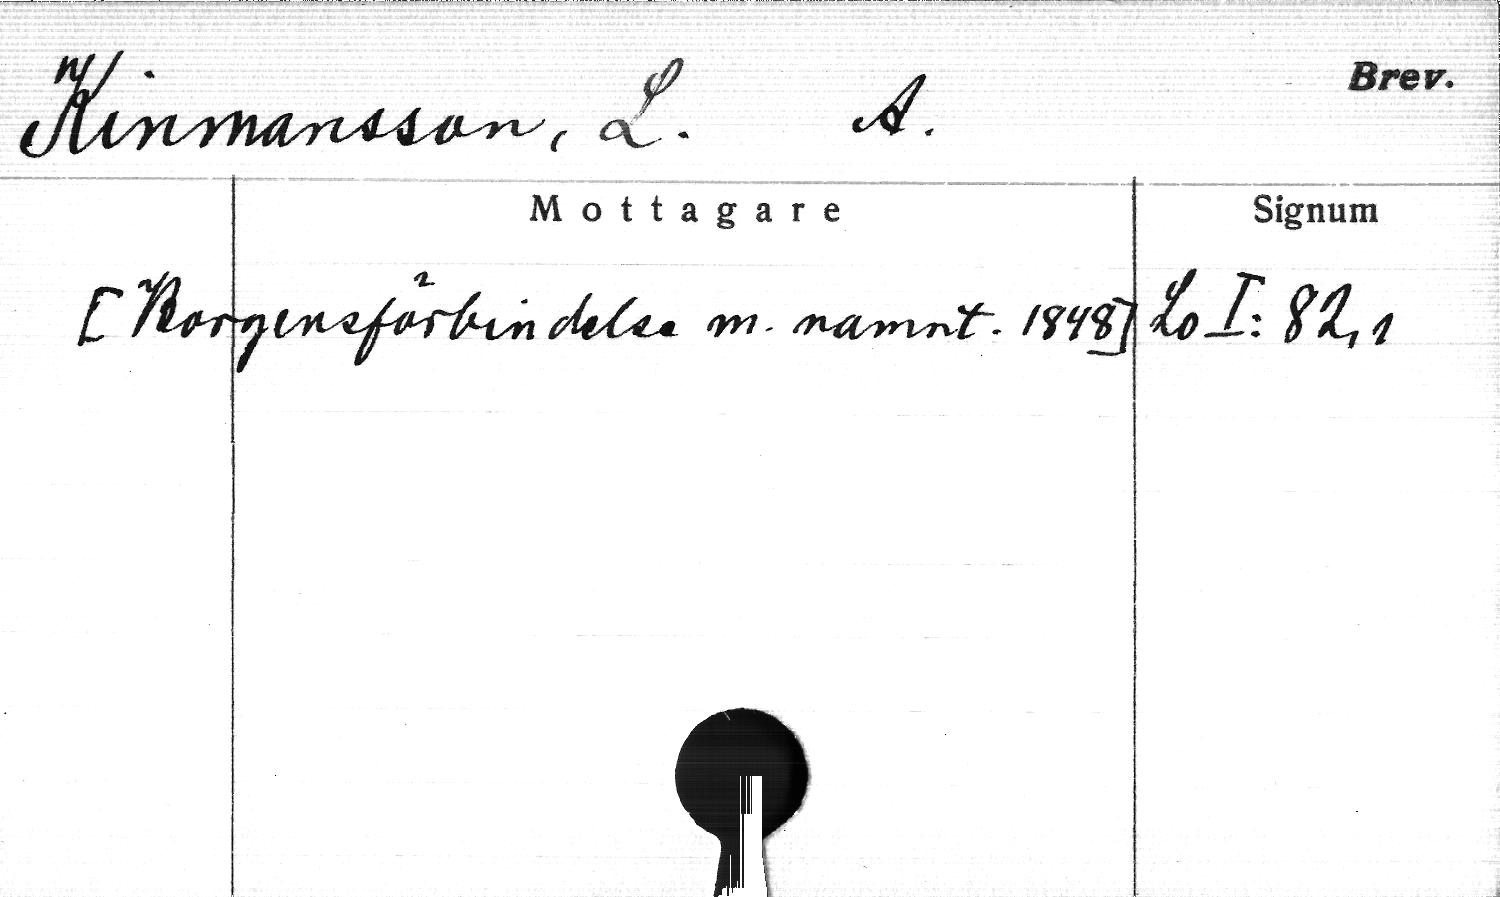 Brev.
Kinmansson, L. A.
Mottagare Signum
[Borgensförbindelse m. namnt. 1848] Lo I: 82,1